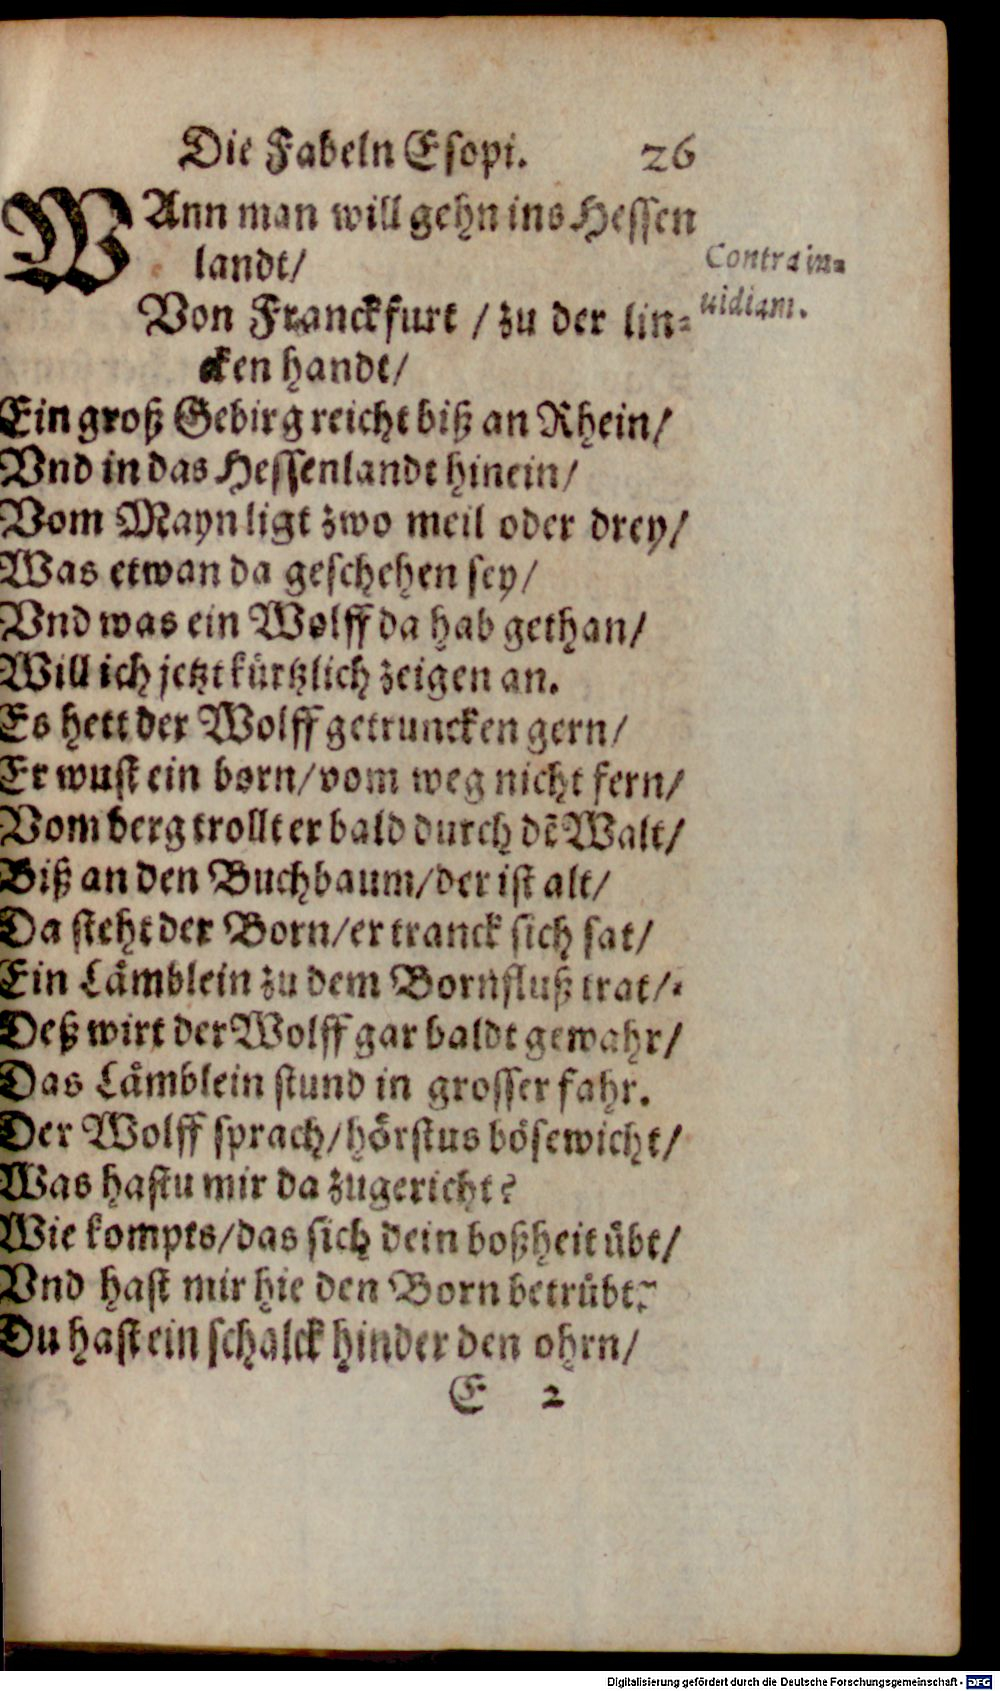 Die Fabeln Esopi. 26
WAnn man will gehn ins Hessen
landt/
Contra in-
uidiam.
Von Franckfurt / zu der lin-
cken handt/
Ein groß Gebirg reicht biß an Rhein/
Vnd in das Hessenlandt hinein/
Vom Mayn ligt zwo meil oder drey/
Was etwan da geschehen sey/
Vnd was ein Wolff da hab gethan/
Will ich jetzt kürtzlich zeigen an.
Es hett der Wolff getruncken gern/
Er wust ein born/vom weg nicht fern/
Vom berg trollt er bald durch dē Walt/
Biß an den Buchbaum/der ist alt/
Da steht der Born/er tranck sich sat/
Ein Lämblein zu dem Bornfluß trat/
Deß wirt der Wolff gar baldt gewahr/
Das Lämblein stund in grosser fahr.
Der Wolff sprach/hörstus bösewicht/
Was hastu mir da zugericht?
Wie kompts/das sich dein boßheit übt/
Vnd hast mir hie den Born betrübt?
Du hast ein schalck hinder den ohrn/
E 2
Digitalisierung gefördert durch die Deutsche Forschungsgemeinschaft - DFG